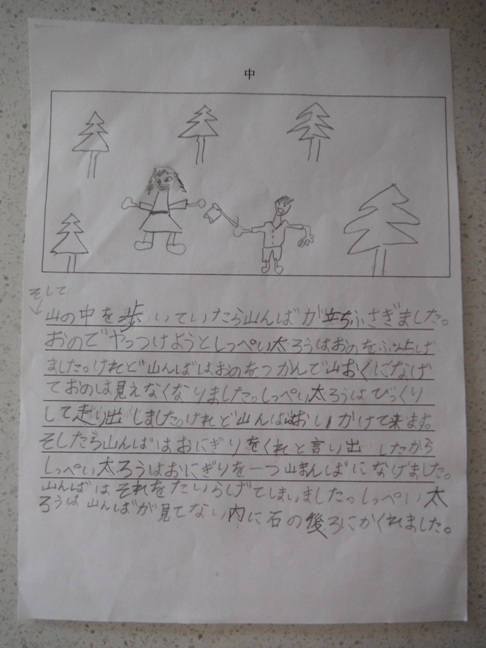 中
そして
山の中を歩いていたら山んばが立ちふさぎました。
おのでやっつけようとしっぺい太ろうはおのをふり上げ
ました。けれど山んばはおのをつかんで山おくになげ
ておのは見えなくなりました。しっぺい太ろうはびっくり
して走り出しました。けれど山んばはおいかけて来ました
そしたら山んばはおにぎりをくれと言い出したから
しっぺい太ろうはおにぎりを一つ山んばになげました。
山んばはそれをたいらげてしまいました。しっぺい太
ろうは山んばが見てない内に石の後ろにかくれました。